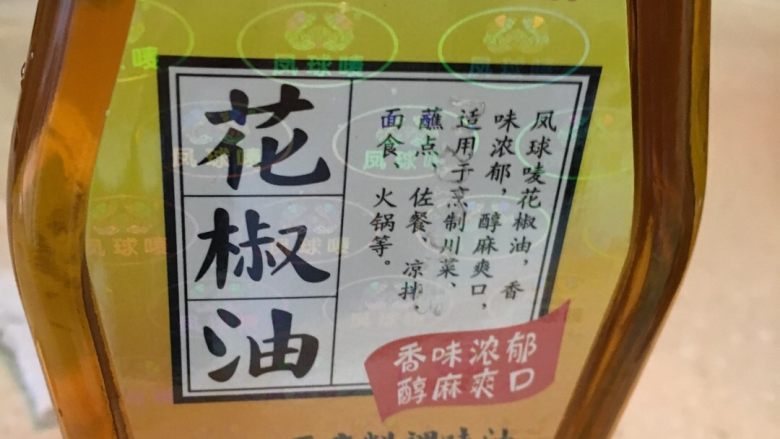 凤球唛
凤球唛
凤球唛
凤球唛
凤球唛
花
椒
油
凤球唛花椒油，香
味浓郁，醇麻爽口，
适用于烹制川菜、
蘸点、佐餐、凉拌、
面食、火锅等。
香味浓郁
醇麻爽口
调味油